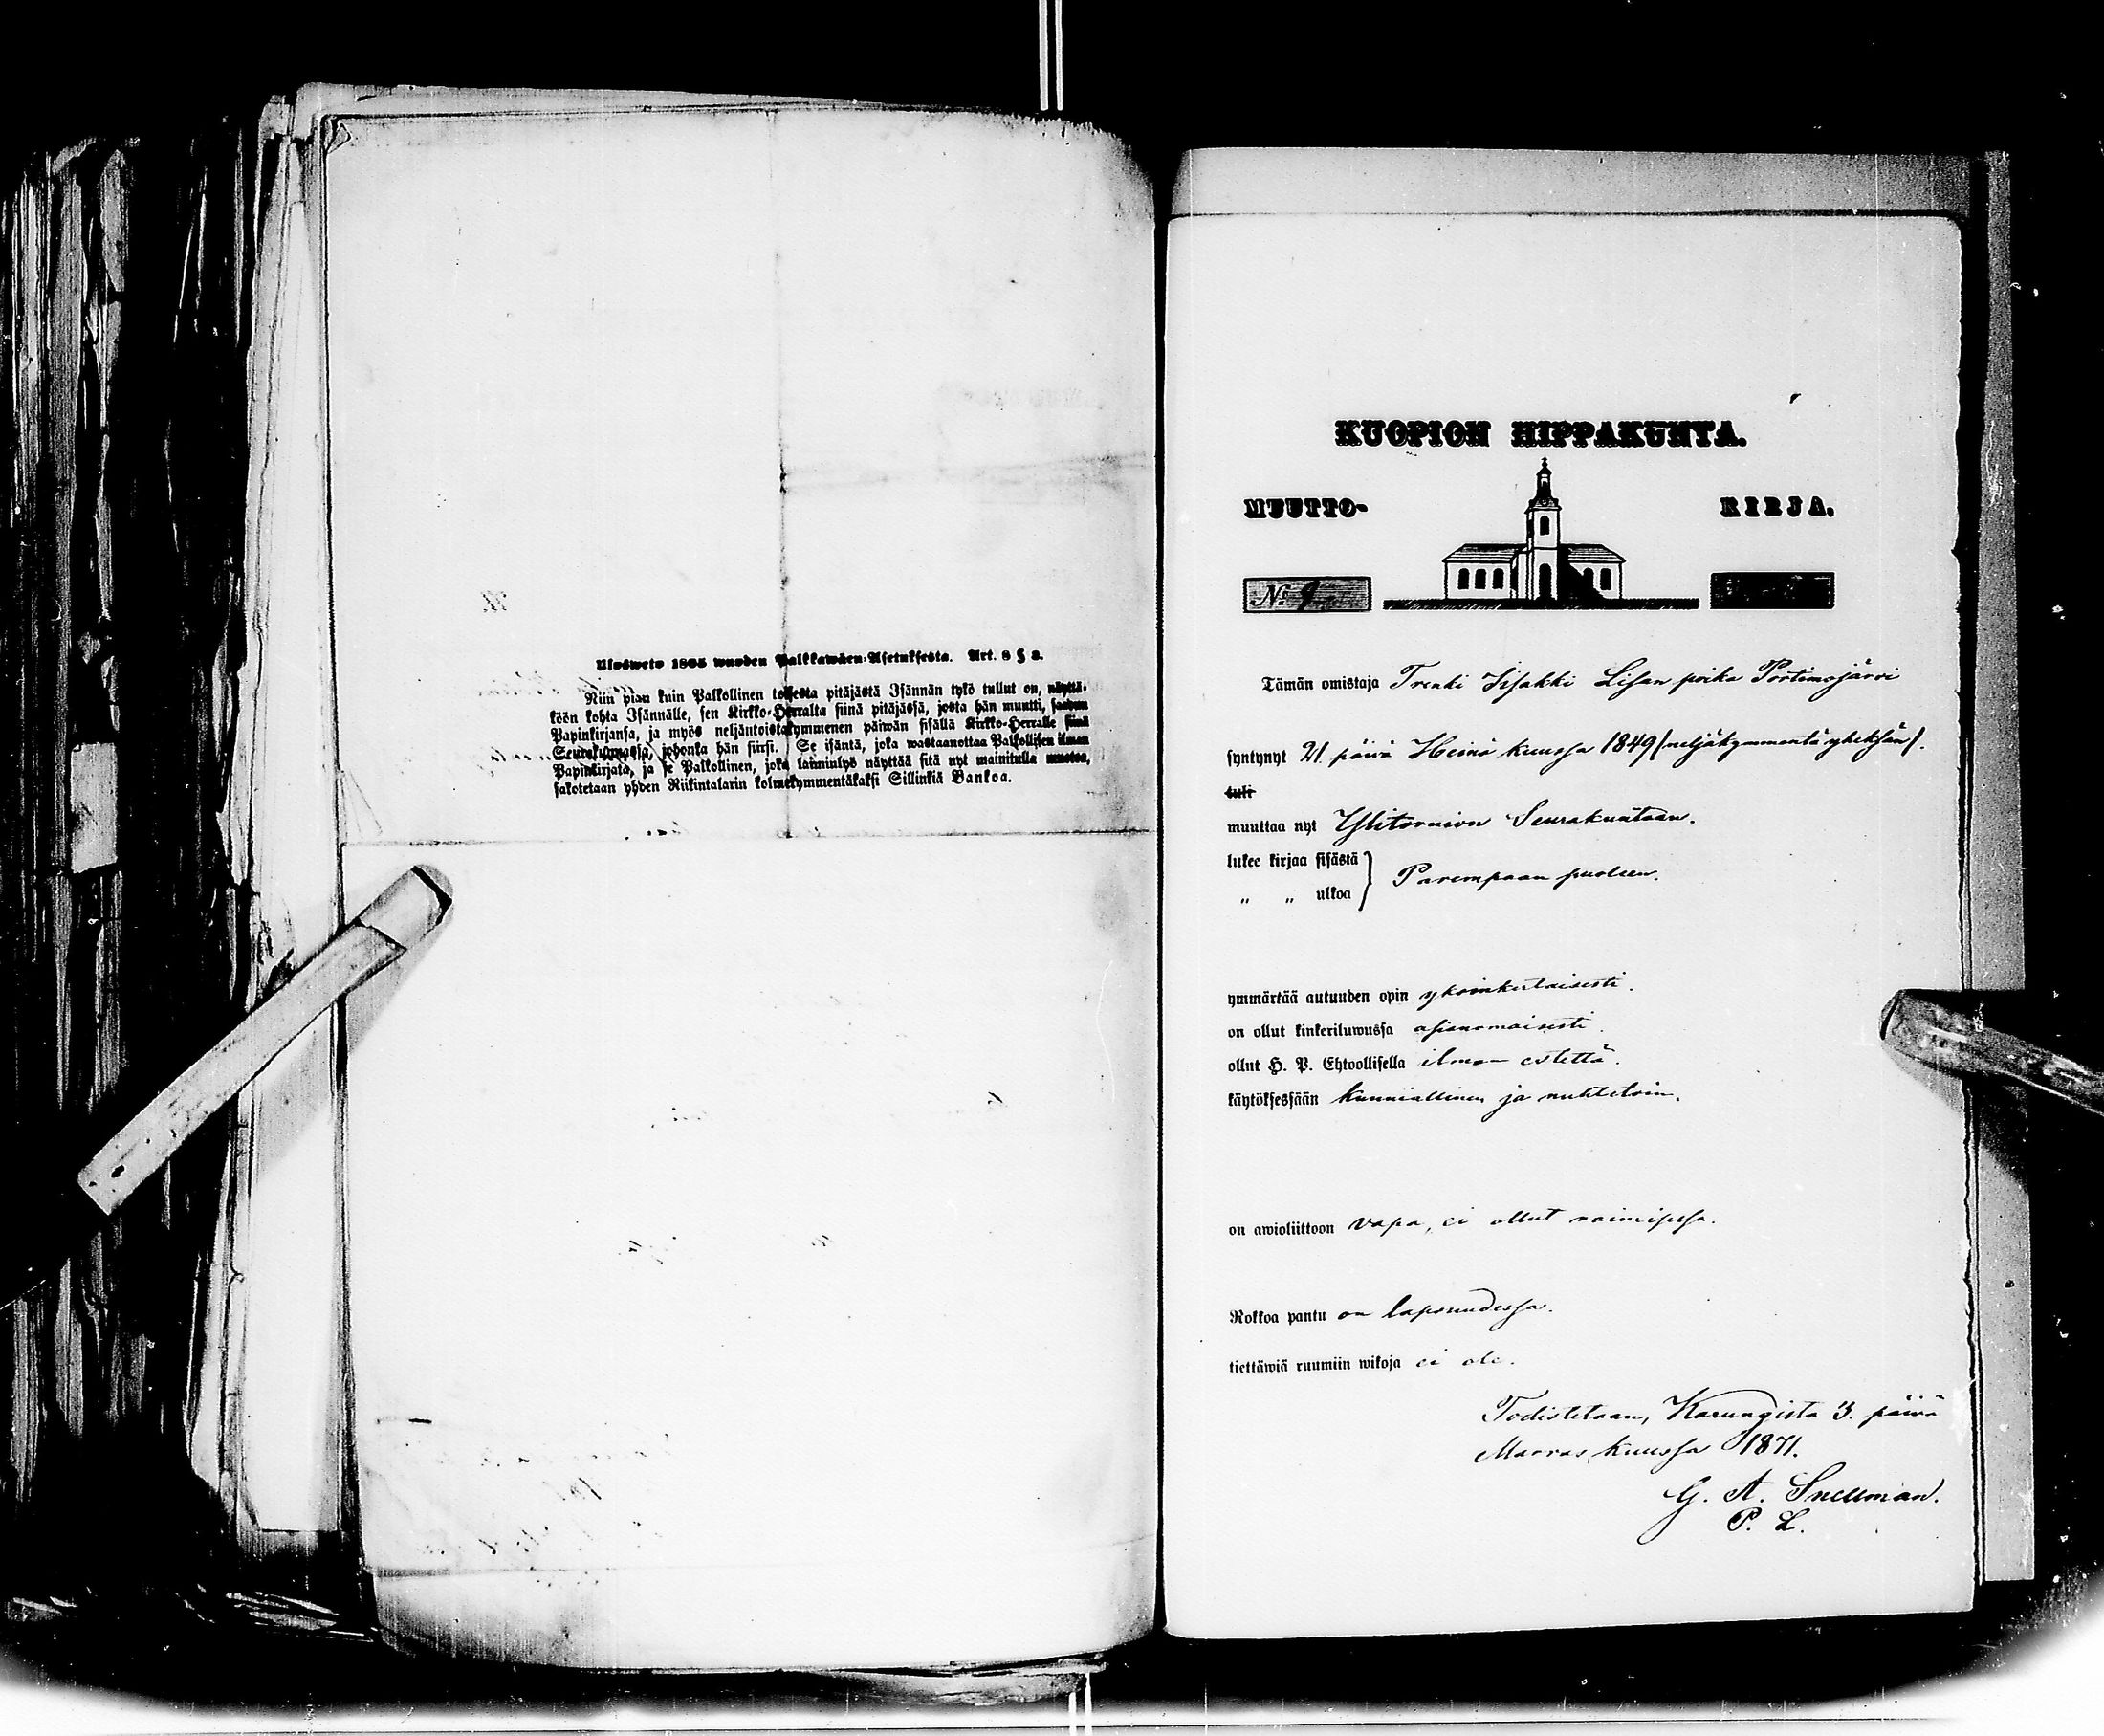 Ulosweto 1805 wuoden Palkkawäen-Asetuksesta. Art. 8 § 2.
Niin pian kuin Palkollinen toisesta pitäjästä Isännän tykö tullut on, näyttä-
köön kohta Isännälle, sen Kirkko-Herralta siinä pitäjässä, josta hän muutti, saadun
Papinkirjansa, ja myös neljäntoistakymmenen päiwän sisällä Kirkko-Herralle siinä
Seurakunnassa, johonka hän siirsi. Se isäntä, joka wastaanottaa Palkollisen ilman
Papinkirjata, ja se Palkollinen, joka laiminlyö näyttää sitä nyt mainitulla muotoa,
sakotetaan yhden Riikintalarin kolmekymmentäkaksi Sillinkiä Bankoa.
KUOPION HIPPAKUNTA.
MUUTTO- KIRJA.
No 9
Tämän omistaja Trenki Iisakki Lisan poika Portimojärvi
syntynyt 21 päivä Heinä kuussa 1849 (neljäkymmentä yheksän).
tuli
muuttaa nyt Ylitornion Seurakuntaan.
lukee kirjaa sisästä
„ „ ulkoa } Parempaan puoleen.
ymmärtää autuuden opin yksinkertaisesti.
on ollut kinkeriluwussa asianomaisesti.
ollut H. P. Ehtoollisella ilman estettä.
käytöksessään kunniallinen ja nuhtetoin.
on awioliittoon vapa, ei ollut naimisessa.
Rokkoa pantu on lapsuudessa.
tiettäwiä ruumiin wikoja ei ole.
Todistetaan, Karungista 3. päivä
Marras kuussa 1871.
G. A. Snellman.
P. L.